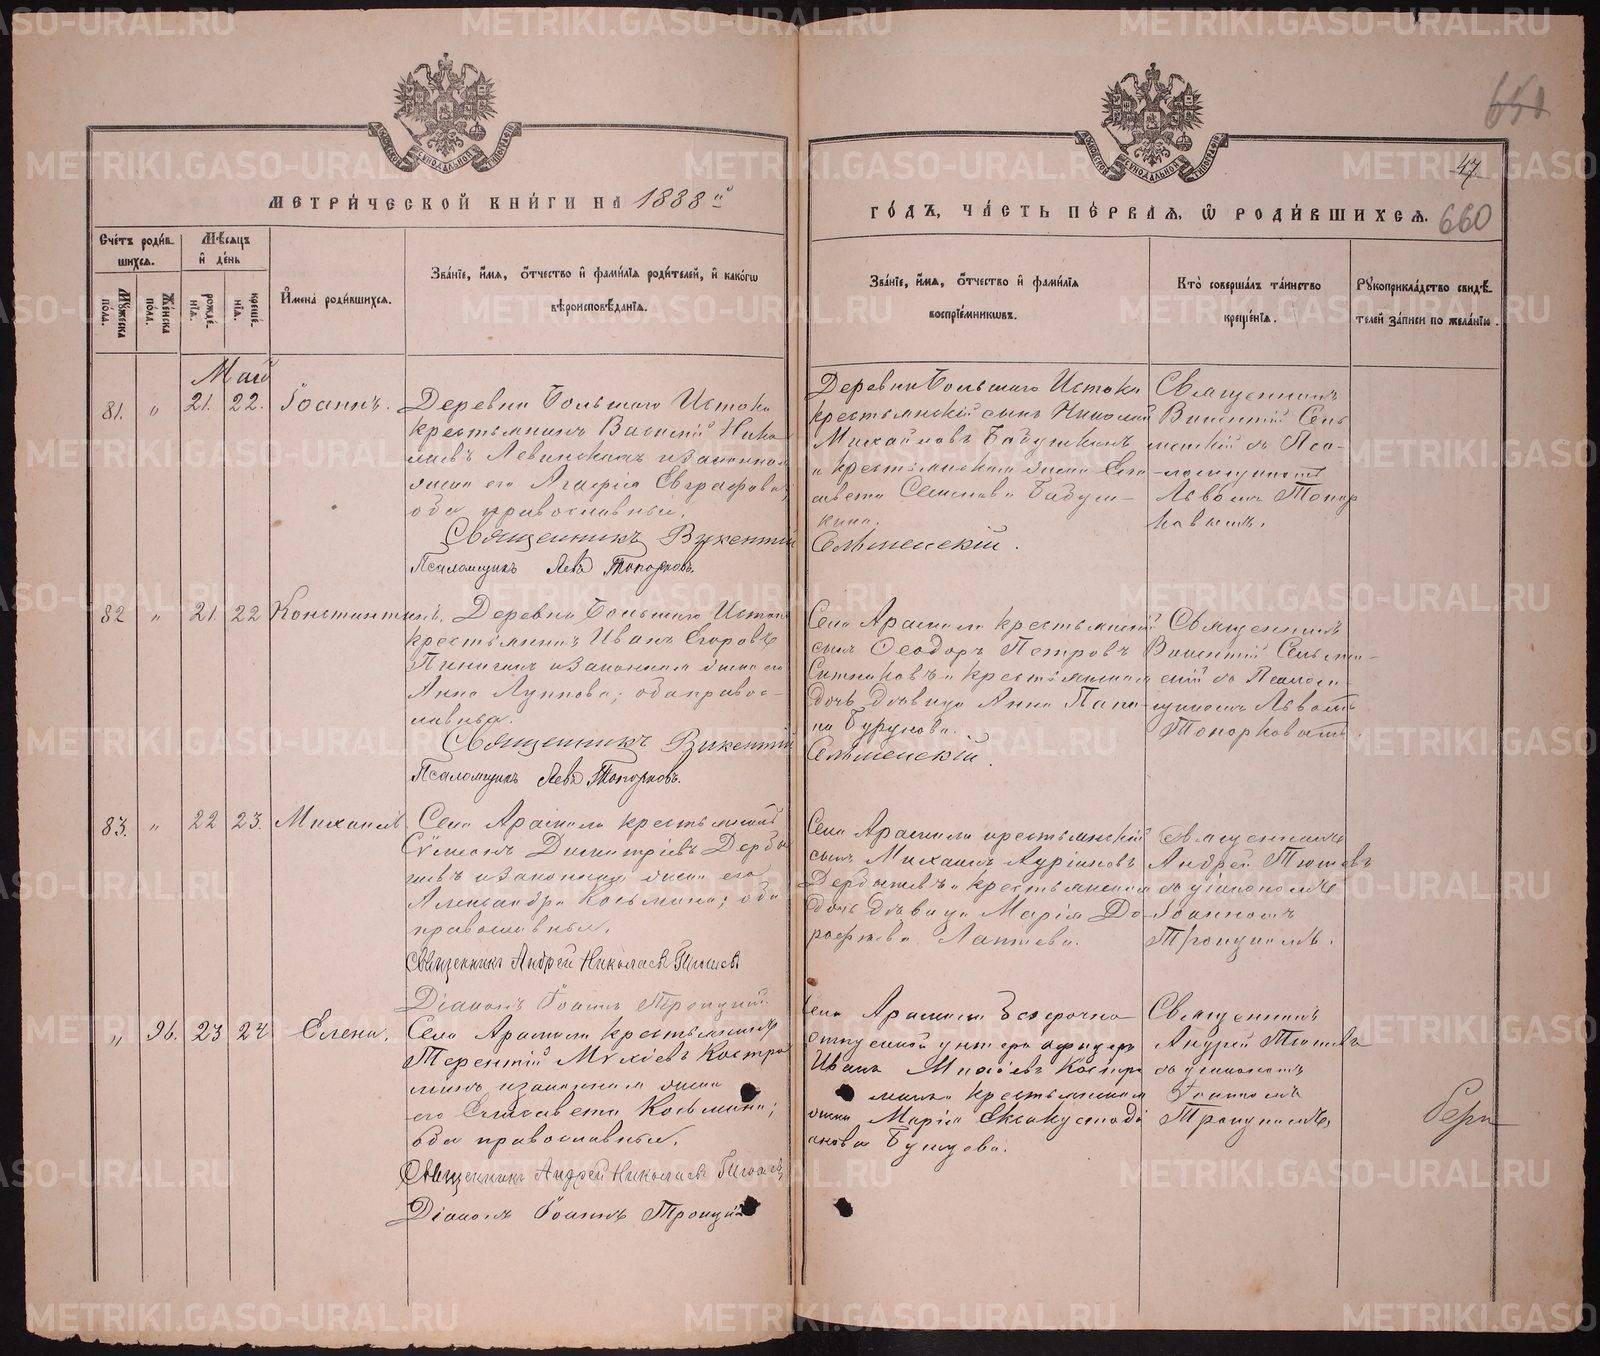 МЕТРИ́ЧЕСКОЙ КНИ́ГИ НА 1888 й
ГО́ДЪ, ЧА́СТЬ ПЕ́РВАѦ, Ѡ҆ РОДИ́ВШИХСѦ.
47
660
Сче́тъ роди́в-
шихсѧ.
Мѣ́сѧцъ
и҆ де́нь
Мꙋ́жеска по́ла.
Же́нска по́ла.
рожде́-
нїѧ.
креще́-
нїѧ.
И҆мена̀ роди́вшихсѧ.
Зва́нїе, и҆́мѧ, ѻ҆́тчество и҆ фами́лїѧ роди́телей, и҆ како́гѡ
вѣроисповѣ́данїѧ.
Зва́нїе, и҆́мѧ, ѻ҆́тчество и҆ фами́лїѧ
воспрїе́мникѡвъ.
Кто̀ соверша́лъ та́инство
креще́нїѧ.
Рꙋкоприкла́дство свидѣ́-
телей за́писи по жела́нїю.
Май
81. " 21. 22. Іоаннъ.
Деревни Большаго Истока
крестьянинъ Василій Нико-
лаевъ Левинскихъ и законная
жена его Агафія Евграфова;
оба православные.
Священникъ Викентій
Псаломщикъ Левъ Топорковъ.
Деревни Большаго Истока
крестьянскій сынъ Николай
Михайловъ Бабушкинъ
и крестьянская жена Ели-
савета Семенова Бабуш-
кина.
Сельменскій.
Священникъ
Викентій Сель-
менскій съ Пса-
ломщикомъ
Львомъ Топор
ковымъ.
82 " 21. 22 Константинъ.
Деревни Большаго Истока
крестьянинъ Иванъ Егоровъ
Пинигинъ и законная жена его
Анна Луппова; оба правос-
лавные.
Священникъ Викентій
Псаломщикъ Левъ Топорковъ.
Села Арамили крестьянскій
сынъ Ѳеодоръ Петровъ
Ситниковъ и крестьянская
дочь девица Анна Папо-
на Бурунова.
Сельменскій.
Священникъ
Викентій Сельмен-
скій съ Псалом-
щикомъ Львомъ
Топорковымъ.
83. " 22 23. Михаилъ
Села Арамили крестьянинъ
Сѵмеонъ Димитріевъ Дербы
шевъ и законная жена его
Александра Косьмина; оба
православные.
Священникъ Андрей Николаевъ Тюшевъ
Діаконъ Іоаннъ Троицкій.
Села Арамили крестьянскій
сынъ Михаилъ Адріановъ
Дербышевъ и крестьянская
дочь девица Марія До-
рофеева Лаптева.
Священникъ
Андрей Тюшевъ
съ діакономъ
Іоанномъ
Троицкимъ.
" 96. 23 24 Елена.
Села Арамили крестьянинъ
Терентій Моѵсіевъ Костро
минъ и законная жена
его Елисавета Косьмина;
оба православные.
Священникъ Андрей Николаевъ Тюшевъ
Діаконъ Іоаннъ Троицкій
Села Арамили безсрочно
отпускной унтеръ офицеръ
Иванъ Моѵсіевъ Костро
минъ и крестьянская
жена Марія Екзакустоді
анова Бунцова.
Священникъ
Андрей Тюшевъ
съ діакономъ
Іоанномъ
Троицкимъ.
METRIKI.GASO-URAL.RU